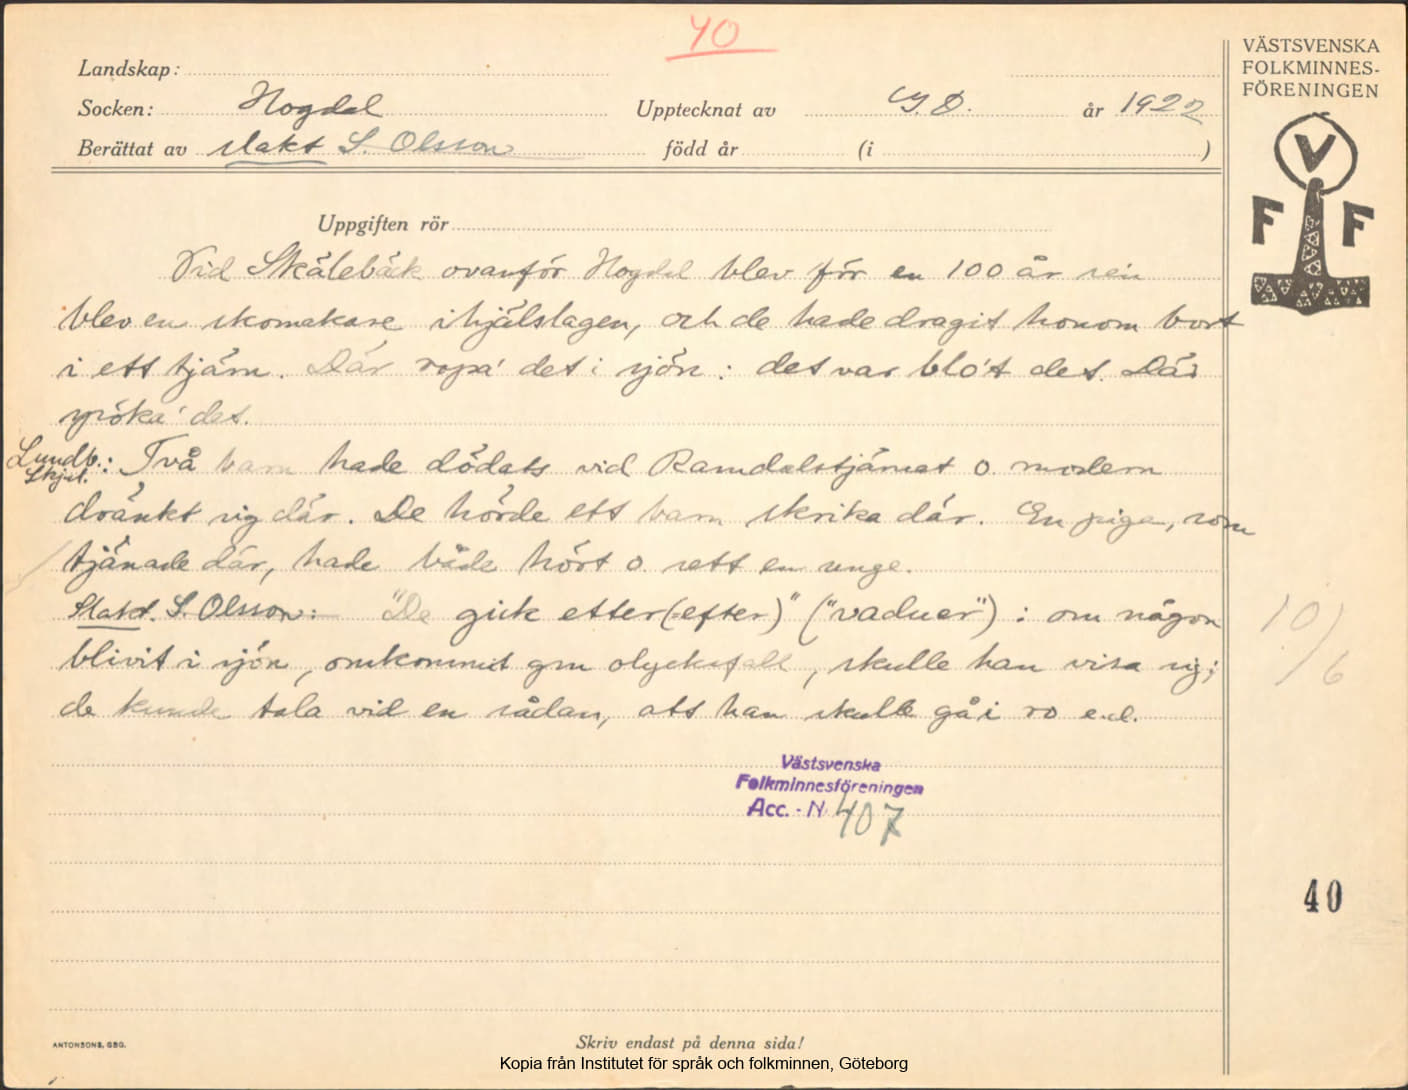 40
Landskap:
VÄSTSVENSKA
FOLKMINNES-
FÖRENINGEN
Socken: Hogdal Upptecknat av år 1922
Berättat av S. Olsson född år (i )
V
F F
Uppgiften rör
Vid Skälebäck ovanför Hogdal blev för en 100 år sen
blev en skomakare ihjälslagen, och de hade dragit honom bort
i ett tjärn. Där ropa' det i sjön: det var blo't det. Där
spöka' det.
Lundb.: Två barn hade dödats vid Ramdalstjärnet o. modern
Skjul.
dränkt sig där. De hörde ett barn skrika där. En piga, som
tjänade där, hade både hört o. sett en unge.
S. Olsson: "De gick etter (=efter)" ("vaduer"): om någon
blivit i sjön, omkommit gm olycksfall, skulle han visa sig;
de kunde tala vid en sådan, att han skulle gå i ro e.d.
10/6
Västsvenska
Folkminnesföreningen
Acc. - N 407
40
ANTONSONS, GBG.
Skriv endast på denna sida!
Kopia från Institutet för språk och folkminnen, Göteborg